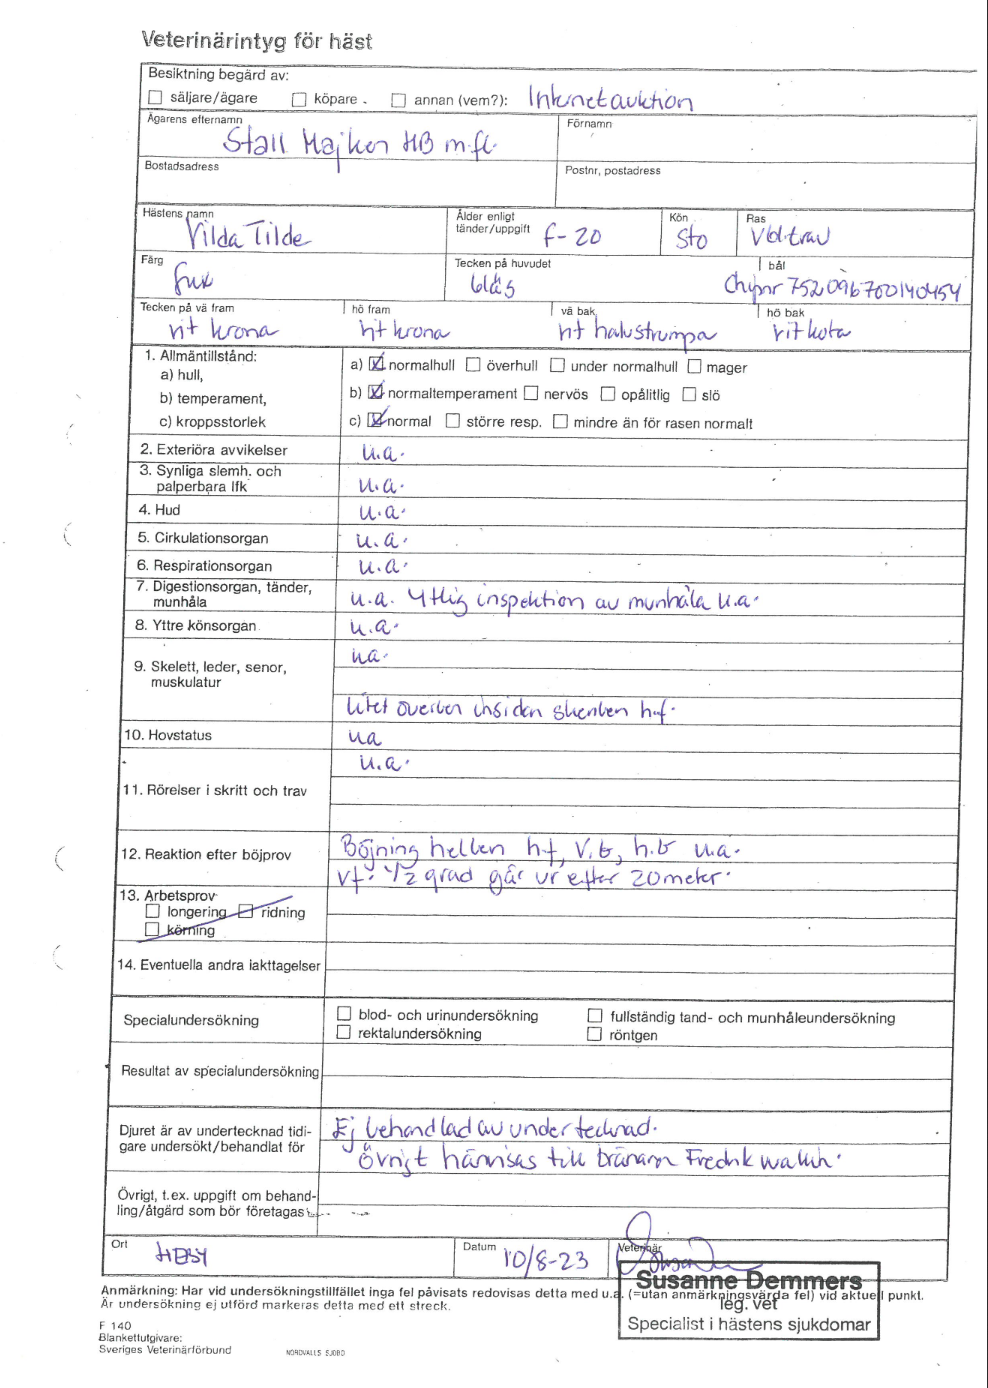 Veterinärintyg för häst
Besiktning begärd av:
säljare/ägare köpare annan (vem?): Internetauktion
Ägarens efternamn Förnamn
Stall Majken HB m.fl.
Bostadsadress Postnr, postadress
Hästens namn Ålder enligt tänder/uppgift Kön Ras
Vilda Tilde f-20 Sto Vbl.trav
Färg Tecken på huvudet bål
fux bläs Chipnr 752096700140454
Tecken på vä fram hö fram vä bak hö bak
vit krona vit krona vit halvstrumpa vit kota
1. Allmäntillstånd:
a) hull, a) normalhull överhull under normalhull mager
b) temperament, b) normaltemperament nervös opålitlig slö
c) kroppsstorlek c) normal större resp. mindre än för rasen normalt
2. Exteriöra avvikelser u.a.
3. Synliga slemh. och palperbara lfk u.a.
4. Hud u.a.
5. Cirkulationsorgan u.a.
6. Respirationsorgan u.a.
7. Digestionsorgan, tänder, munhåla u.a. Ytlig inspektion av munhåla u.a.
8. Yttre könsorgan u.a.
9. Skelett, leder, senor, muskulatur ua.
Litet överben insidan skenben h.f.
10. Hovstatus ua
11. Rörelser i skritt och trav u.a.
12. Reaktion efter böjprov Böjning helben h.f, v.b, h.b u.a.
vf. 1/2 grad går ur efter 20 meter.
13. Arbetsprov
longering ridning
körning
14. Eventuella andra iakttagelser
Specialundersökning blod- och urinundersökning fullständig tand- och munhåleundersökning
rektalundersökning röntgen
Resultat av specialundersökning
Djuret är av undertecknad tidi- Ej behandlad av undertecknad.
gare undersökt/behandlat för Övrigt hänvisas till tränaren Fredrik Wallin.
Övrigt, t.ex. uppgift om behand-
ling/åtgärd som bör företagas
Ort Datum Veterinär
HEBY 10/8-23
Susanne Demmers
leg. vet
Specialist i hästens sjukdomar
Anmärkning: Har vid undersökningstillfället inga fel påvisats redovisas detta med u.a. (=utan anmärkningsvärda fel) vid aktuell punkt.
Är undersökning ej utförd markeras detta med ett streck.
F 140
Blankettutgivare:
Sveriges Veterinärförbund NORDVALLS SJÖBO